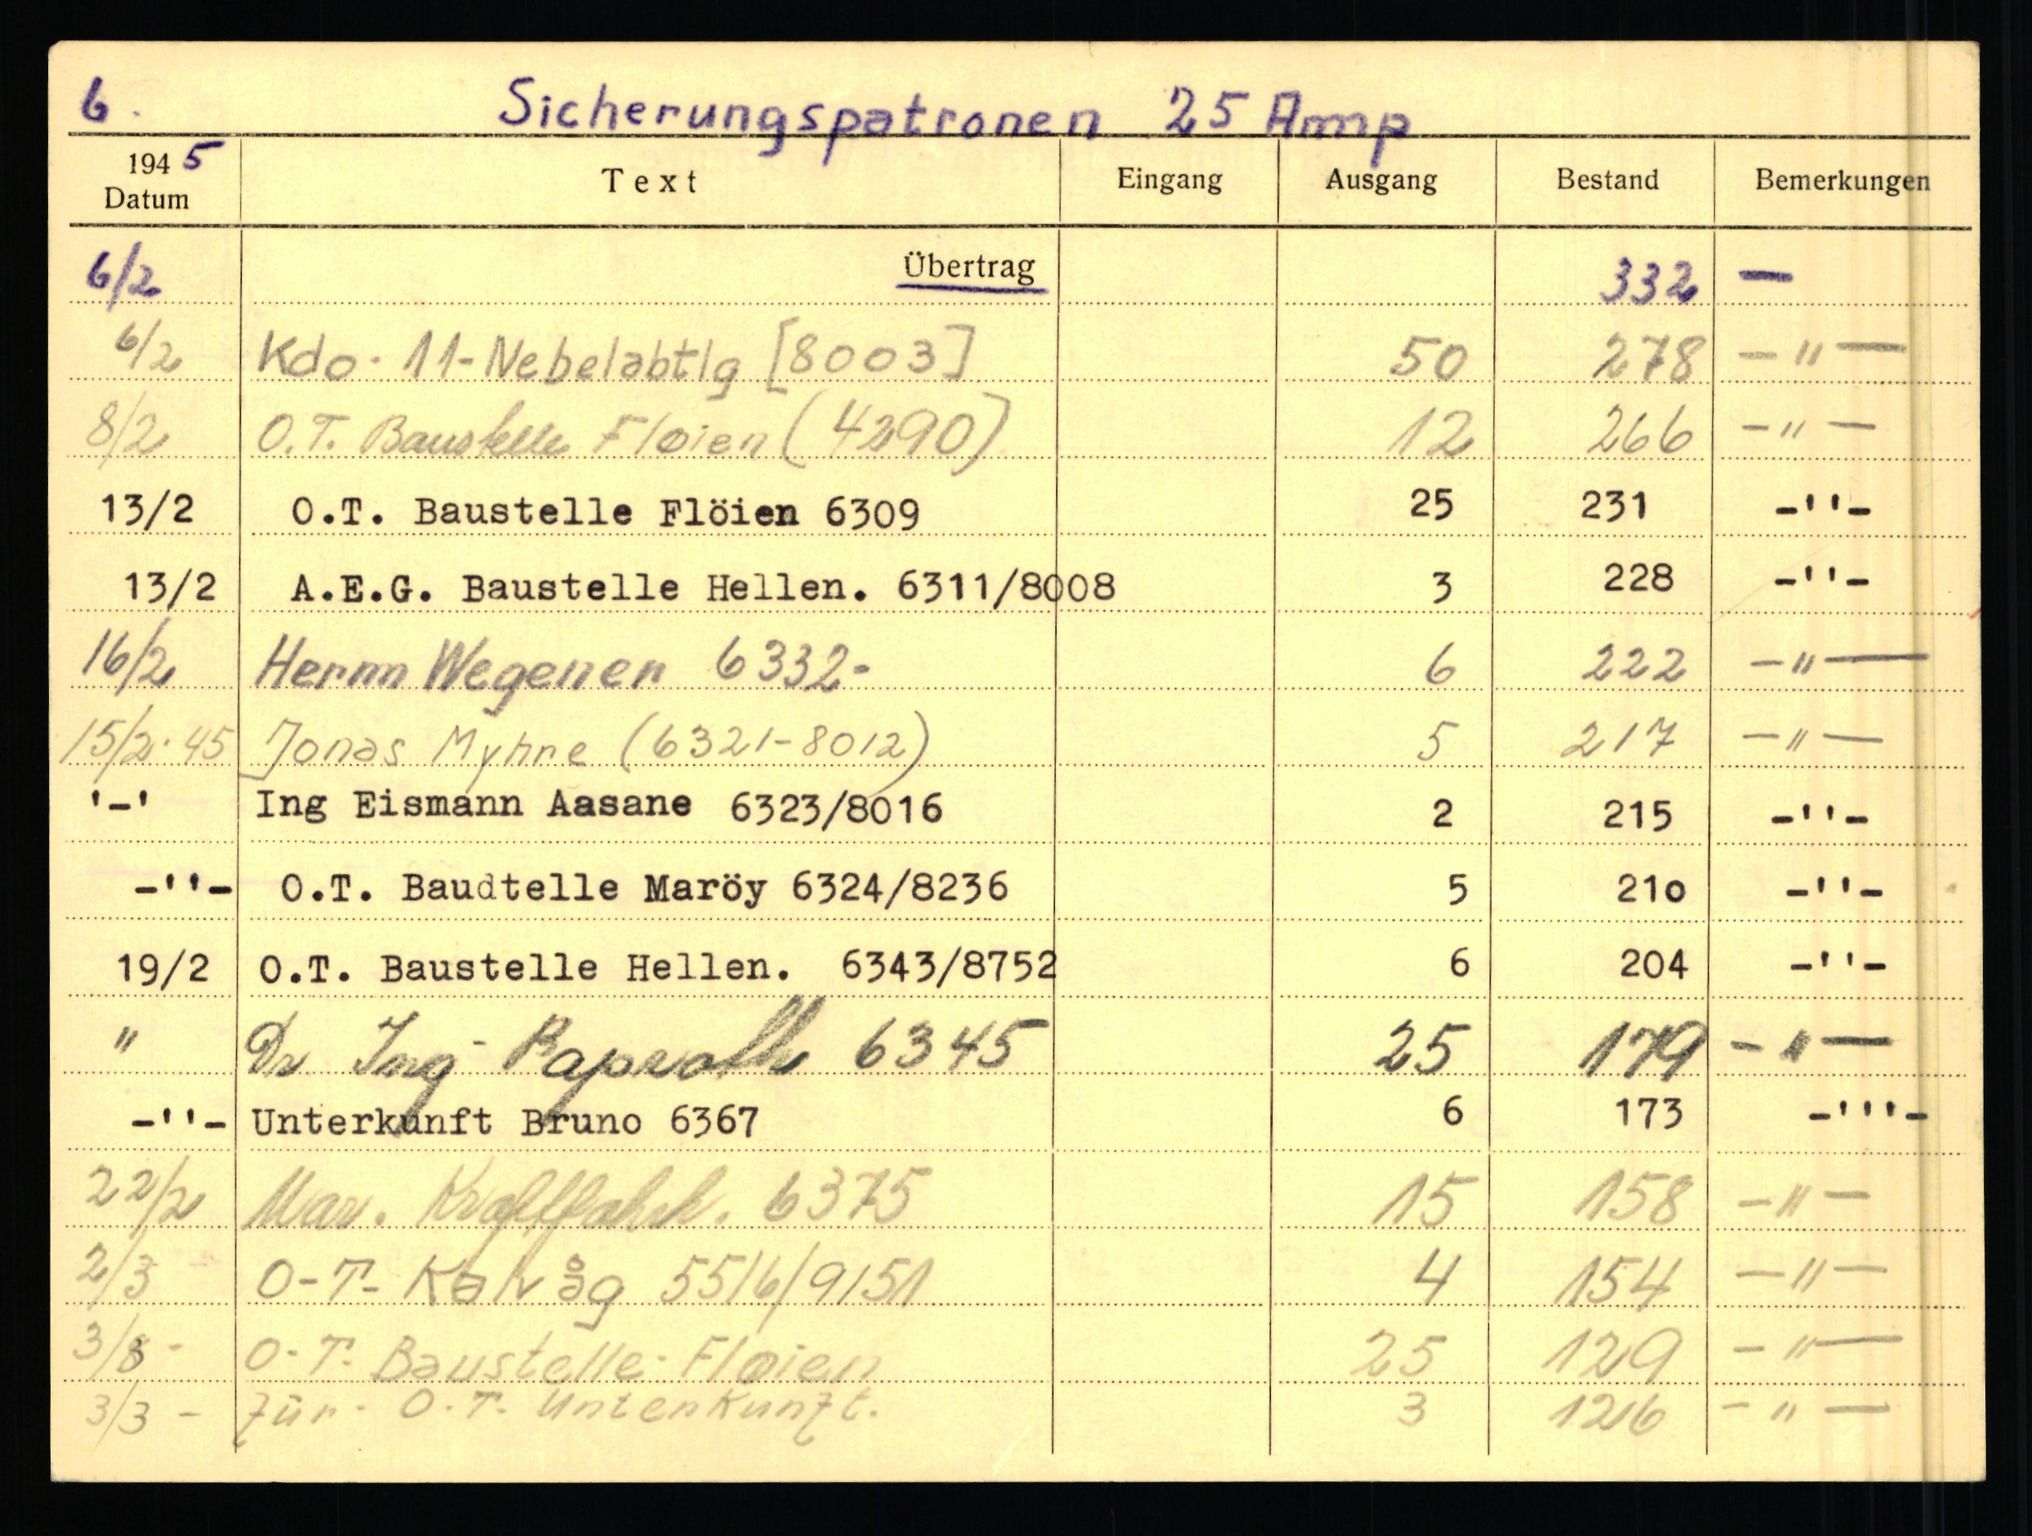 6. Sicherungspatronen 25 Amp
1945 Datum Text Eingang Ausgang Bestand Bemerkungen
6/2 Übertrag 332 —
6/2 Kdo. 11-Nebelabtlg [8003] 50 278 — " —
8/2 O.T. Baustelle Fløien (4290) 12 266 — " —
13/2 O.T. Baustelle Flöien 6309 25 231 -''-
13/2 A.E.G. Baustelle Hellen. 6311/8008 3 228 -''-
16/2 Herrn Wegener 6332- 6 222 — " —
15/2.45 Jonas Myhre (6321-8012) 5 217 — " —
'-' Ing Eismann Aasane 6323/8016 2 215 -''-
-''- O.T. Baudtelle Maröy 6324/8236 5 210 -''-
19/2 O.T. Baustelle Hellen. 6343/8752 6 204 -''-
" Dr Ing- Paproth 6345 25 179 — " —
-''- Unterkunft Bruno 6367 6 173 -'''-
22/2 Mar. 6375 15 158 — " —
2/3 O-T- Kalvåg 5516/9151 4 154 — " —
3/3 - O-T- Baustelle- Fløien 25 129 — " —
3/3 - für. O.T. Unterkunft. 3 126 — " —